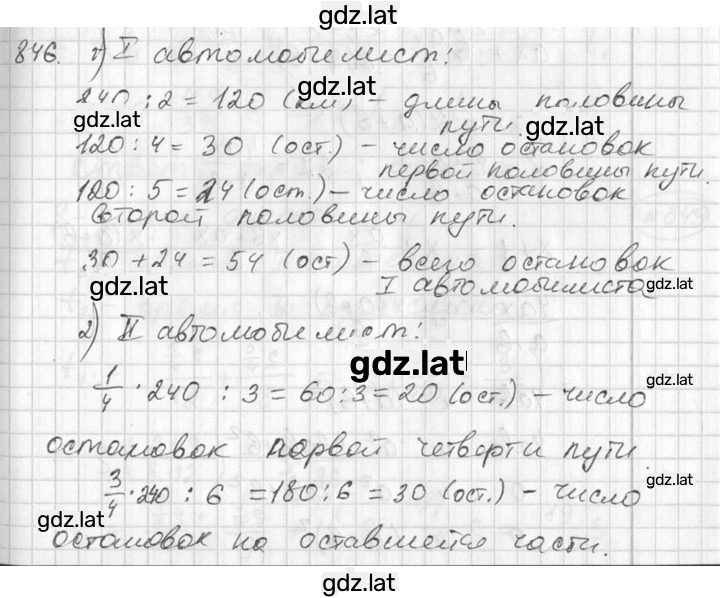 gdz.lat
846. 1) I автомобилист:
gdz.lat
240 : 2 = 120 (км) - длины половины
gdz.lat
пути.
gdz.lat
120 : 4 = 30 (ост.) - число остановок
первой половины пути.
120 : 5 = 24 (ост.) - число остановок
второй половины пути.
30 + 24 = 54 (ост) - всего остановок
gdz.lat
I автомобилиста
gdz.lat
2) II автомобилист:
gdz.lat
1/4 · 240 : 3 = 60 : 3 = 20 (ост.) - число
gdz.lat
остановок первой четверти пути.
3/4 · 240 : 6 = 180 : 6 = 30 (ост.) - число
gdz.lat
gdz.lat
остановок на оставшейся части.
gdz.lat